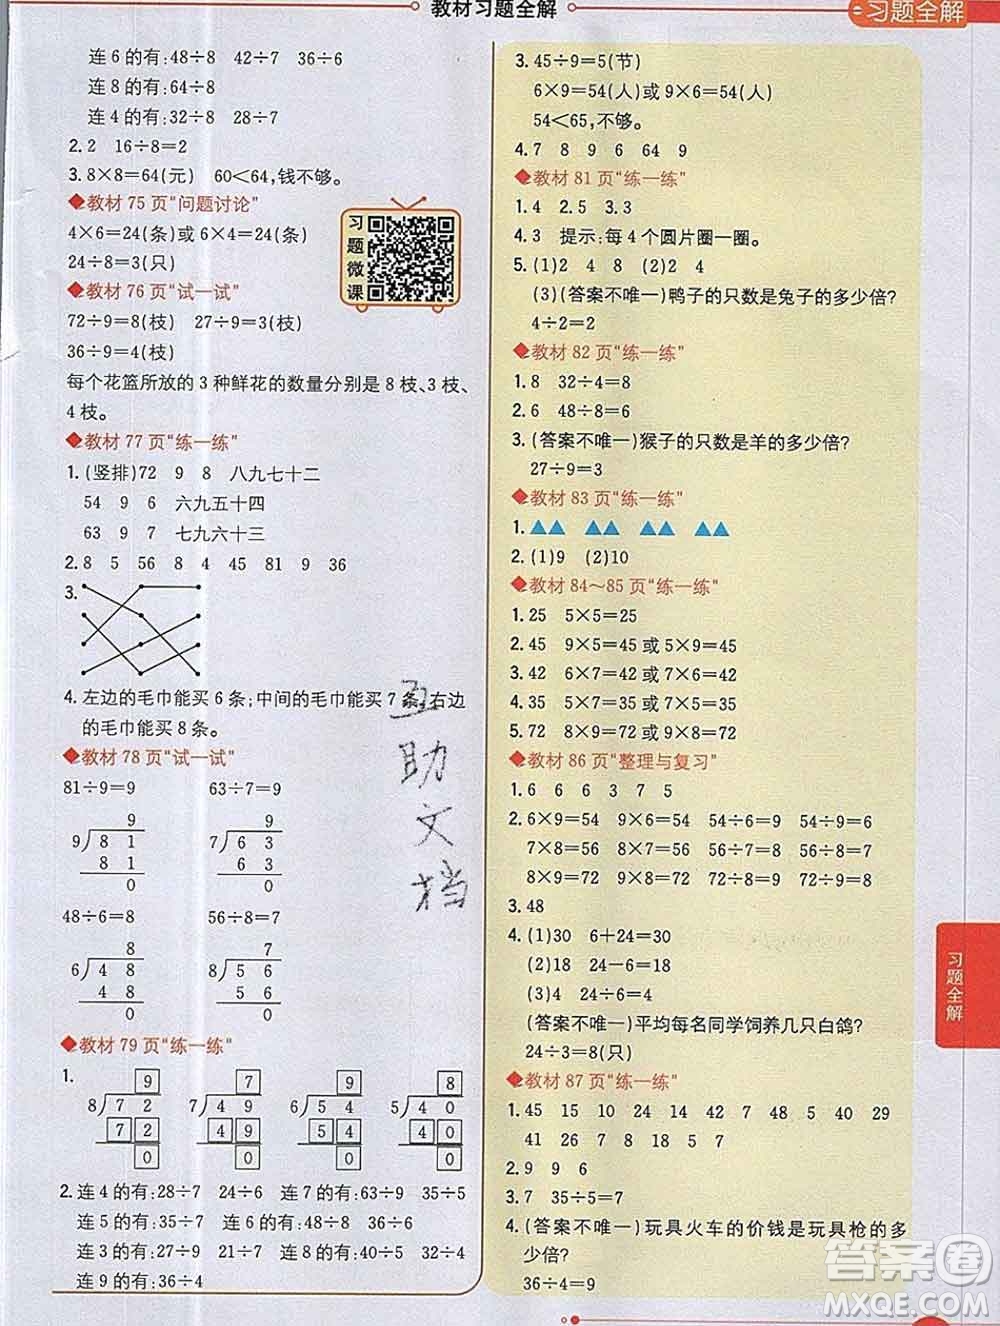 教材习题全解
习题全解
连 6 的有:48÷8 42÷7 36÷6
连 8 的有:64÷8
连 4 的有:32÷8 28÷7
2. 2 16÷8=2
3. 8×8=64(元) 60<64,钱不够。
教材 75 页“问题讨论”
4×6=24(条)或 6×4=24(条)
24÷8=3(只)
习题微课
教材 76 页“试一试”
72÷9=8(枝) 27÷9=3(枝)
36÷9=4(枝)
每个花篮所放的 3 种鲜花的数量分别是 8 枝、3 枝、
4 枝。
教材 77 页“练一练”
1. (竖排)72 9 8 八九七十二
54 9 6 六九五十四
63 9 7 七九六十三
2. 8 5 56 8 4 45 81 9 36
3.
4. 左边的毛巾能买 6 条;中间的毛巾能买 7 条;右边
的毛巾能买 8 条。
教材 78 页“试一试”
81÷9=9 63÷7=9
9 9
9 8 1 7 6 3
8 1 6 3
0 0
48÷6=8 56÷8=7
8 7
6 4 8 8 5 6
4 8 5 6
0 0
教材 79 页“练一练”
1. 9 7 9 8
8 7 2 7 4 9 6 5 4 5 4 0
7 2 4 9 5 4 4 0
0 0 0 0
2. 连 4 的有:28÷7 24÷6 连 7 的有:63÷9 35÷5
连 5 的有:35÷7 连 6 的有:48÷8 36÷6
连 3 的有:27÷9 21÷7 连 8 的有:40÷5 32÷4
连 9 的有:36÷4
3. 45÷9=5(节)
6×9=54(人)或 9×6=54(人)
54<65,不够。
4. 7 8 9 6 64 9
教材 81 页“练一练”
1. 4 2. 5 3. 3
4. 3 提示:每 4 个圆片圈一圈。
5. (1)2 4 8 (2)2 4
(3)(答案不唯一)鸭子的只数是兔子的多少倍?
4÷2=2
教材 82 页“练一练”
1. 8 32÷4=8
2. 6 48÷8=6
3. (答案不唯一)猴子的只数是羊的多少倍?
27÷9=3
教材 83 页“练一练”
1.
2. (1)9 (2)10
教材 84～85 页“练一练”
1. 25 5×5=25
2. 45 9×5=45 或 5×9=45
3. 42 6×7=42 或 7×6=42
4. 35 5×7=35 或 7×5=35
5. 72 8×9=72 或 9×8=72
教材 86 页“整理与复习”
1. 6 6 6 3 7 5
2. 6×9=54 9×6=54 54÷6=9 54÷9=6
7×8=56 8×7=56 56÷7=8 56÷8=7
8×9=72 9×8=72 72÷8=9 72÷9=8
3. 48
4. (1)30 6+24=30
(2)18 24-6=18
(3)4 24÷6=4
(答案不唯一)平均每名同学饲养几只白鸽?
24÷3=8(只)
教材 87 页“练一练”
1. 45 15 10 24 14 42 7 48 5 40 29
41 26 7 8 18 5 7
2. 9 9 6
3. 7 35÷5=7
4. (答案不唯一)玩具火车的价钱是玩具枪的多
少倍?
36÷4=9
互助文档
习题全解
答案圈
MXQE.COM